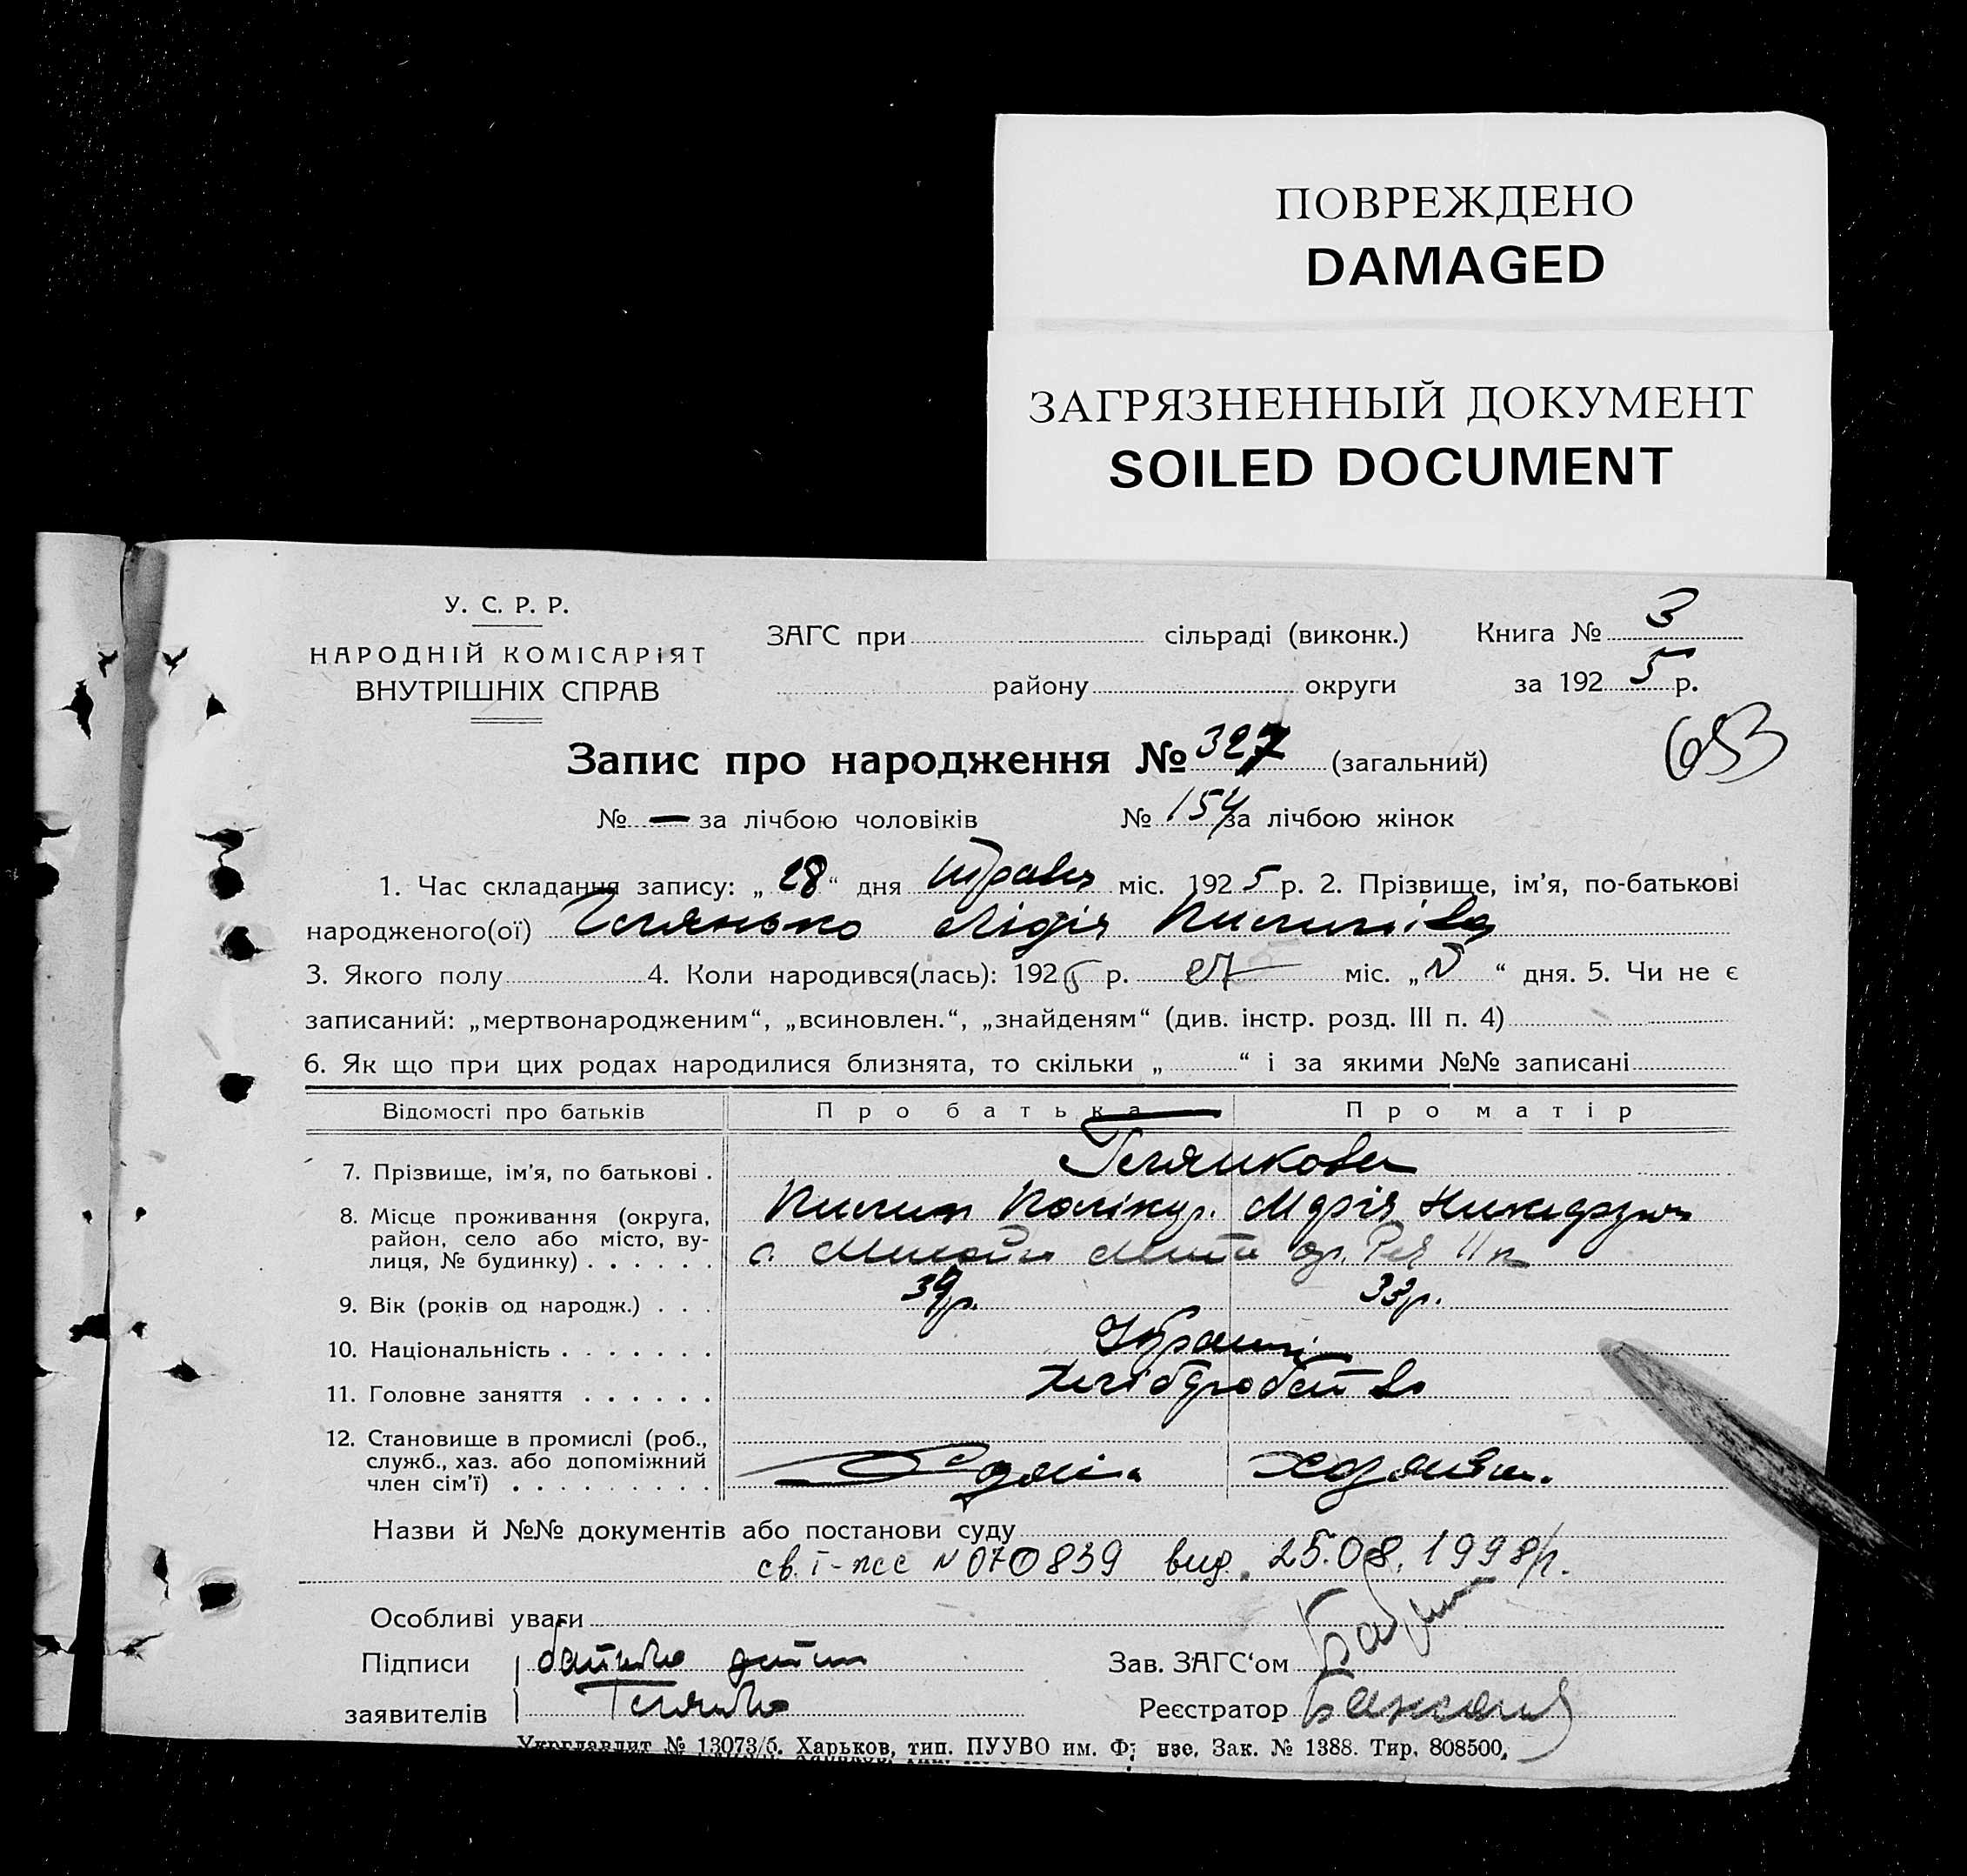 ПОВРЕЖДЕНО
DAMAGED
ЗАГРЯЗНЕННЫЙ ДОКУМЕНТ
SOILED DOCUMENT
У. С. Р. Р.
НАРОДНІЙ КОМІСАРІЯТ
ВНУТРІШНІХ СПРАВ
ЗАГС при сільраді (виконк.) Книга № 3
району округи за 1925 р.
653
Запис про народження № 327 (загальний)
№ — за лічбою чоловіків № 154 за лічбою жінок
1. Час складання запису: „28“ дня травня міс. 1925 р. 2. Прізвище, ім'я, по-батькові
народженого(ої) Лідія
3. Якого полу 4. Коли народився(лась): 1925 р. 27 міс. „V“ дня. 5. Чи не є
записаний: „мертвонародженим“, „всиновлен.“, „знайденям“ (див. інстр. розд. III п. 4)
6. Як що при цих родах народилися близнята, то скільки „ “ і за якими №№ записані
Відомості про батьків Про батька Про матір
7. Прізвище, ім'я, по батькові .
8. Місце проживання (округа, район, село або місто, вулиця, № будинку) . . . . . .
Марія
9. Вік (років од народж.) . . . 39р. 33р.
10. Національність . . . . . . .
11. Головне заняття . . . . . . Хліборобство
12. Становище в промислі (роб., служб., хаз. або допоміжний член сім'ї) . . . . . . . . .
Назви й №№ документів або постанови суду
св. I-нсс № 070839 вид. 25.08.1998р.
Особливі уваги
Підписи батько Зав. ЗАГС'ом
заявителів Реєстратор
Укрглавлит № 13073/б. Харьков, тип. ПУУВО им. Ф нзе. Зак. № 1388. Тир. 808500.